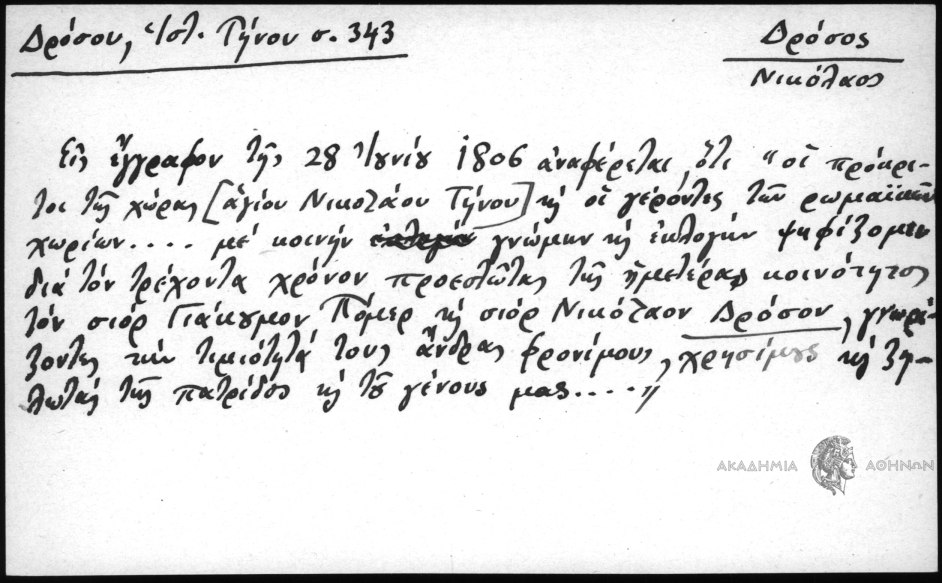 Δρόσου, Ἱστ. Τήνου σ. 343
Δρόσος
Νικόλαος
Εἰς ἔγγραφον τῆς 28 Ἰουνίου 1806 ἀναφέρεται, ὅτι "οἱ πρόκρι-
τοι τῆς χώρας [ἁγίου Νικολάου Τήνου] καὶ οἱ γέροντες τῶν ρωμαϊκῶν
χωρίων.... μὲ κοινὴν γνώμην καὶ ἐκλογὴν ψηφίζομεν
διὰ τὸν τρέχοντα χρόνον προεστῶτας τῆς ἡμετέρας κοινότητος
τὸν σιὸρ Γιάκουμον Πόμερ καὶ σιὸρ Νικόλαον Δρόσον, γνωρί-
ζοντες τὴν τιμιότητά τους ἄνδρας φρονίμους, χρησίμους καὶ ζη-
λωτὰς τῆς πατρίδος καὶ τοῦ γένους μας...."
ΑΚΑΔΗΜΙΑ ΑΘΗΝΩΝ